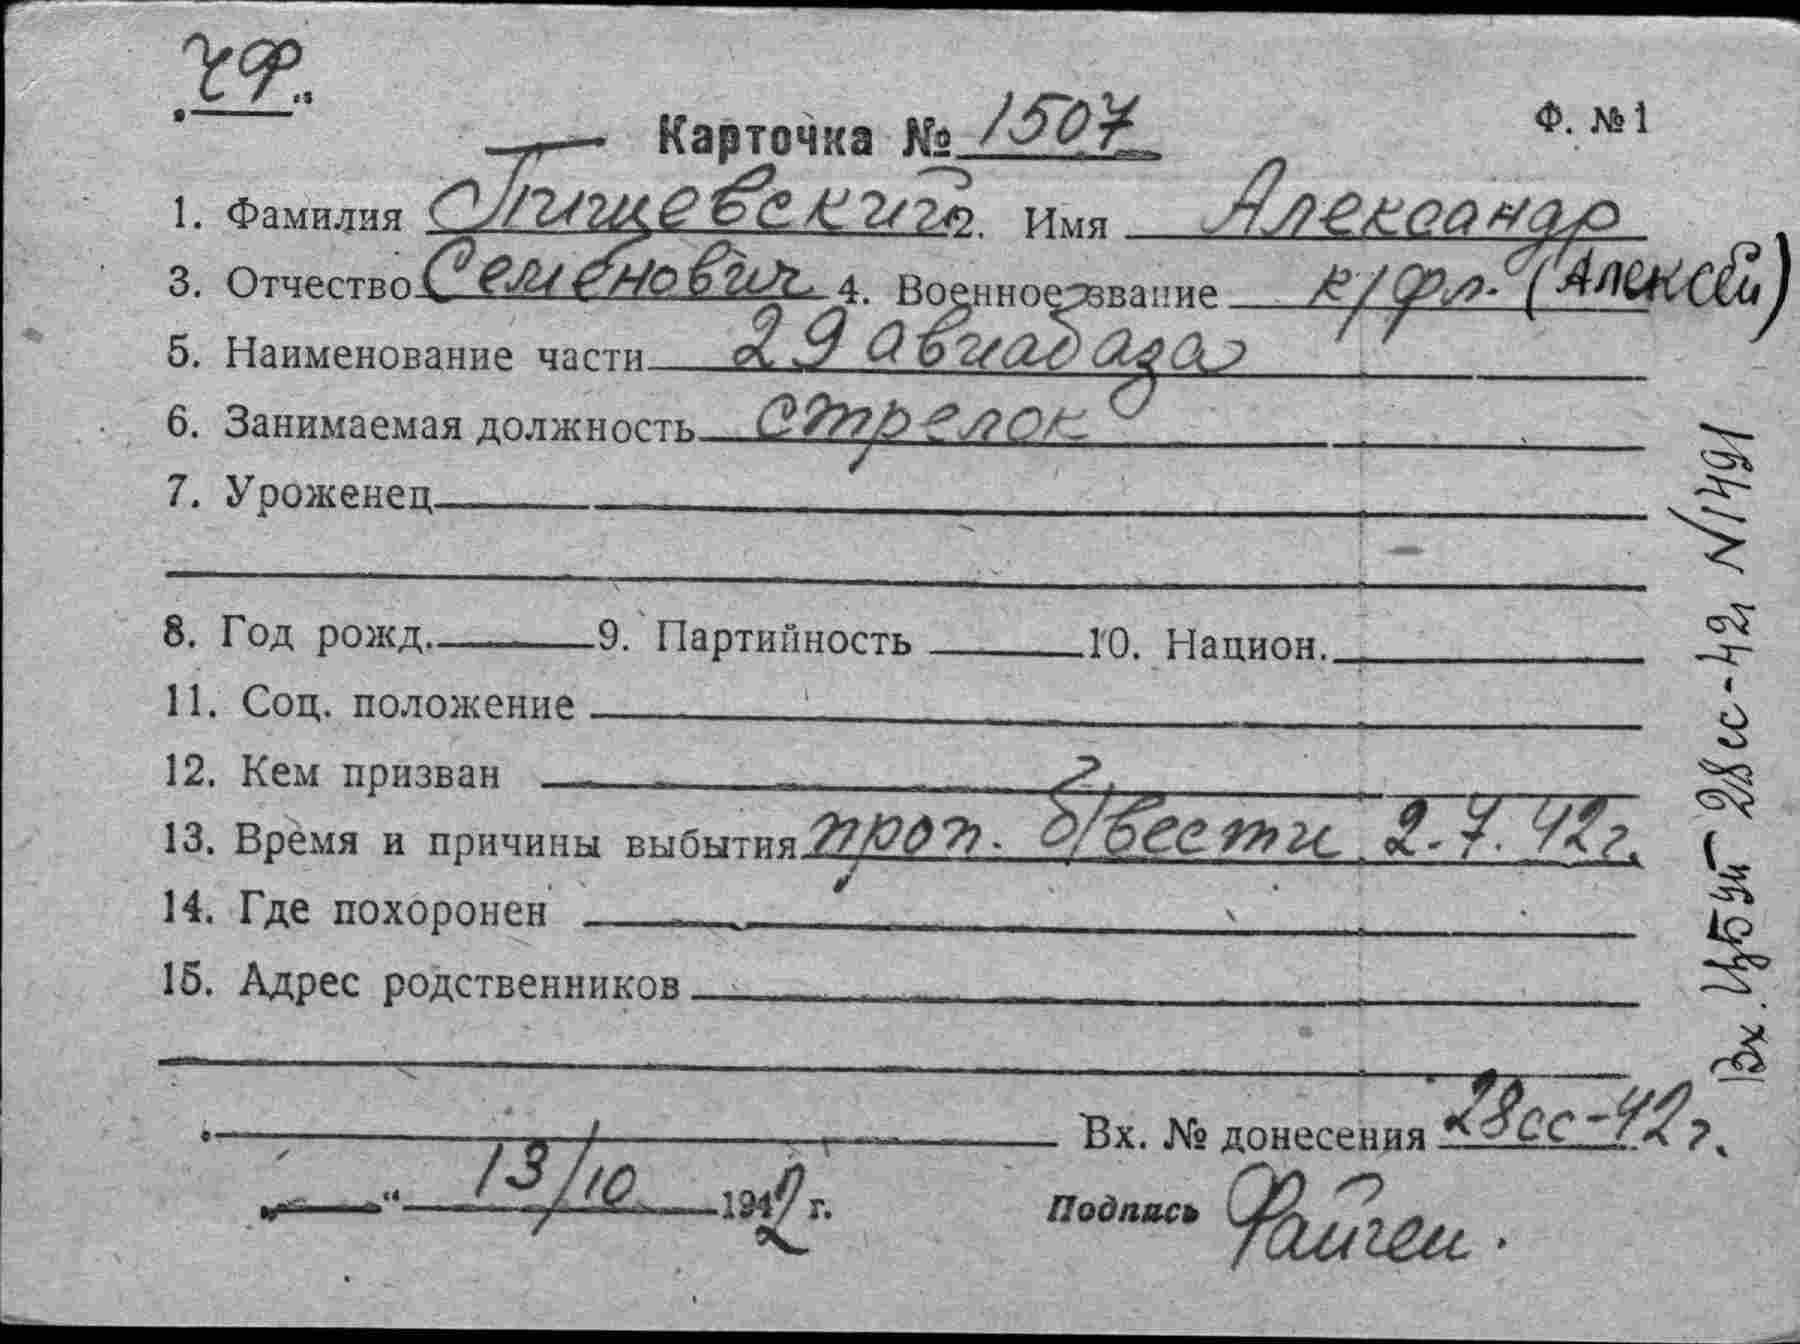 ЧФ.
Карточка № 1507
Ф. № 1
1. Фамилия Пищевский 2. Имя Александр
3. Отчество Семенович 4. Военное звание к/фл. (Алексей)
5. Наименование части 29 авиабаза
6. Занимаемая должность стрелок
7. Уроженец
8. Год рожд. 9. Партийность 10. Национ.
11. Соц. положение
12. Кем призван
13. Время и причины выбытия проп. б/вести 2.7.42г.
14. Где похоронен
15. Адрес родственников
Вх. № донесения 28сс-42г.
" 13/10 1942 г. Подпись
Вх. 28сс-42г N11491